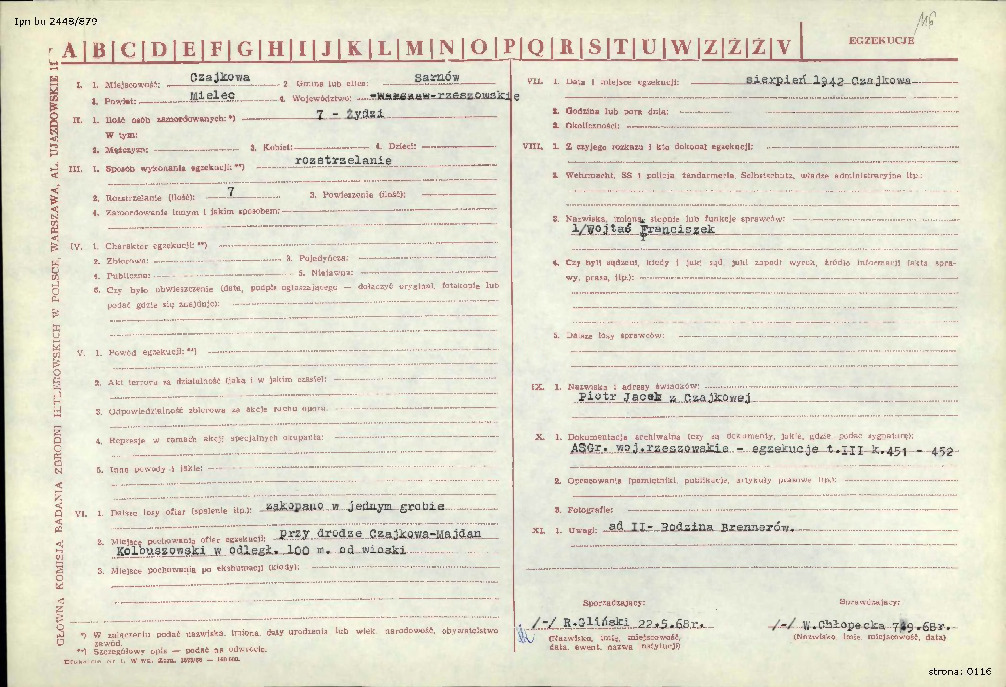 Ipn bu 2448/879
116
A|B|C|D|E|F|G|H|I|J|K|L|M|N|O|P|Q|R|S|T|U|W|Z|Ż|Ź|V
EGZEKUCJE
GŁÓWNA KOMISJA BADANIA ZBRODNI HITLEROWSKICH W POLSCE, WARSZAWA, AL. UJAZDOWSKIE 11
I. 1. Miejscowość: Czajkowa 2 Gmina lub ulica: Sarnów
3. Powiat: Mielec 4. Województwo: rzeszowskie
II. 1. Ilość osób zamordowanych:*) 7 - Żydzi
W tym:
2. Mężczyzn: 3. Kobiet: 4. Dzieci:
III. 1. Sposób wykonania egzekucji:**) rozstrzelanie
2. Rozstrzelanie (ilość): 7 3. Powieszenie (ilość):
4. Zamordowanie innym i jakim sposobem:
IV. 1. Charakter egzekucji:**)
2. Zbiorowa: 3. Pojedyńcza:
4. Publiczna: 5. Niejawna:
6. Czy było obwieszczenie (data, podpis ogłaszającego — dołączyć oryginał, fotokopię lub
podać gdzie się znajduje):
V. 1. Powód egzekucji:**)
2. Akt terroru za działalność (jaką i w jakim czasie):
3. Odpowiedzialność zbiorowa za akcje ruchu oporu
4. Represje w ramach akcji specjalnych okupanta:
5. Inne powody i jakie:
VI. 1. Dalsze losy ofiar (spalenie itp.): zakopano w jednym grobie
2. Miejsce pochowania ofiar egzekucji: przy drodze Czajkowa-Majdan
Kolbuszowski w odległ. 100 m. od wioski
3. Miejsce pochowania po ekshumacji (kiedy):
*) W załączeniu podać nazwiska, imiona, daty urodzenia lub wiek, narodowość, obywatelstwo
zawód.
**) Szczegółowy opis — podać na odwrocie.
VII. 1. Data i miejsce egzekucji: sierpień 1942 Czajkowa
2. Godzina lub pora dnia:
3. Okoliczności:
VIII. 1. Z czyjego rozkazu i kto dokonał egzekucji:
2. Wehrmacht, SS i policja, żandarmeria, Selbstschutz, władze administracyjne itp.:
3. Nazwiska, imiona, stopnie lub funkcje sprawców:
1/Wojtaś Franciszek
4. Czy byli sądzeni, kiedy i jaki sąd, jaki zapadł wyrok, źródło informacji (akta spra-
wy, prasa, itp.):
5. Dalsze losy sprawców:
IX. 1. Nazwiska i adresy świadków:
Piotr Jacek z Czajkowej
X. 1. Dokumentacja archiwalna (czy są dokumenty, jakie, gdzie podać sygnaturę):
ASGr. woj.rzeszowskie - egzekucje t.III k.451 - 452
2. Opracowania (pamiętniki, publikacje, artykuły prasowe itp.):
3. Fotografie:
XI. 1. Uwagi: ad II- Rodzina Brennerów.
Sporządzający:
/-/ R.Gliński 22.5.68r.
(Nazwisko, imię, miejscowość,
data, ewent. nazwa instytucji)
Sprawdzający:
/-/ W.Chłopecka 7.9.68r.
(Nazwisko imię, miejscowość, data)
strona: 0116